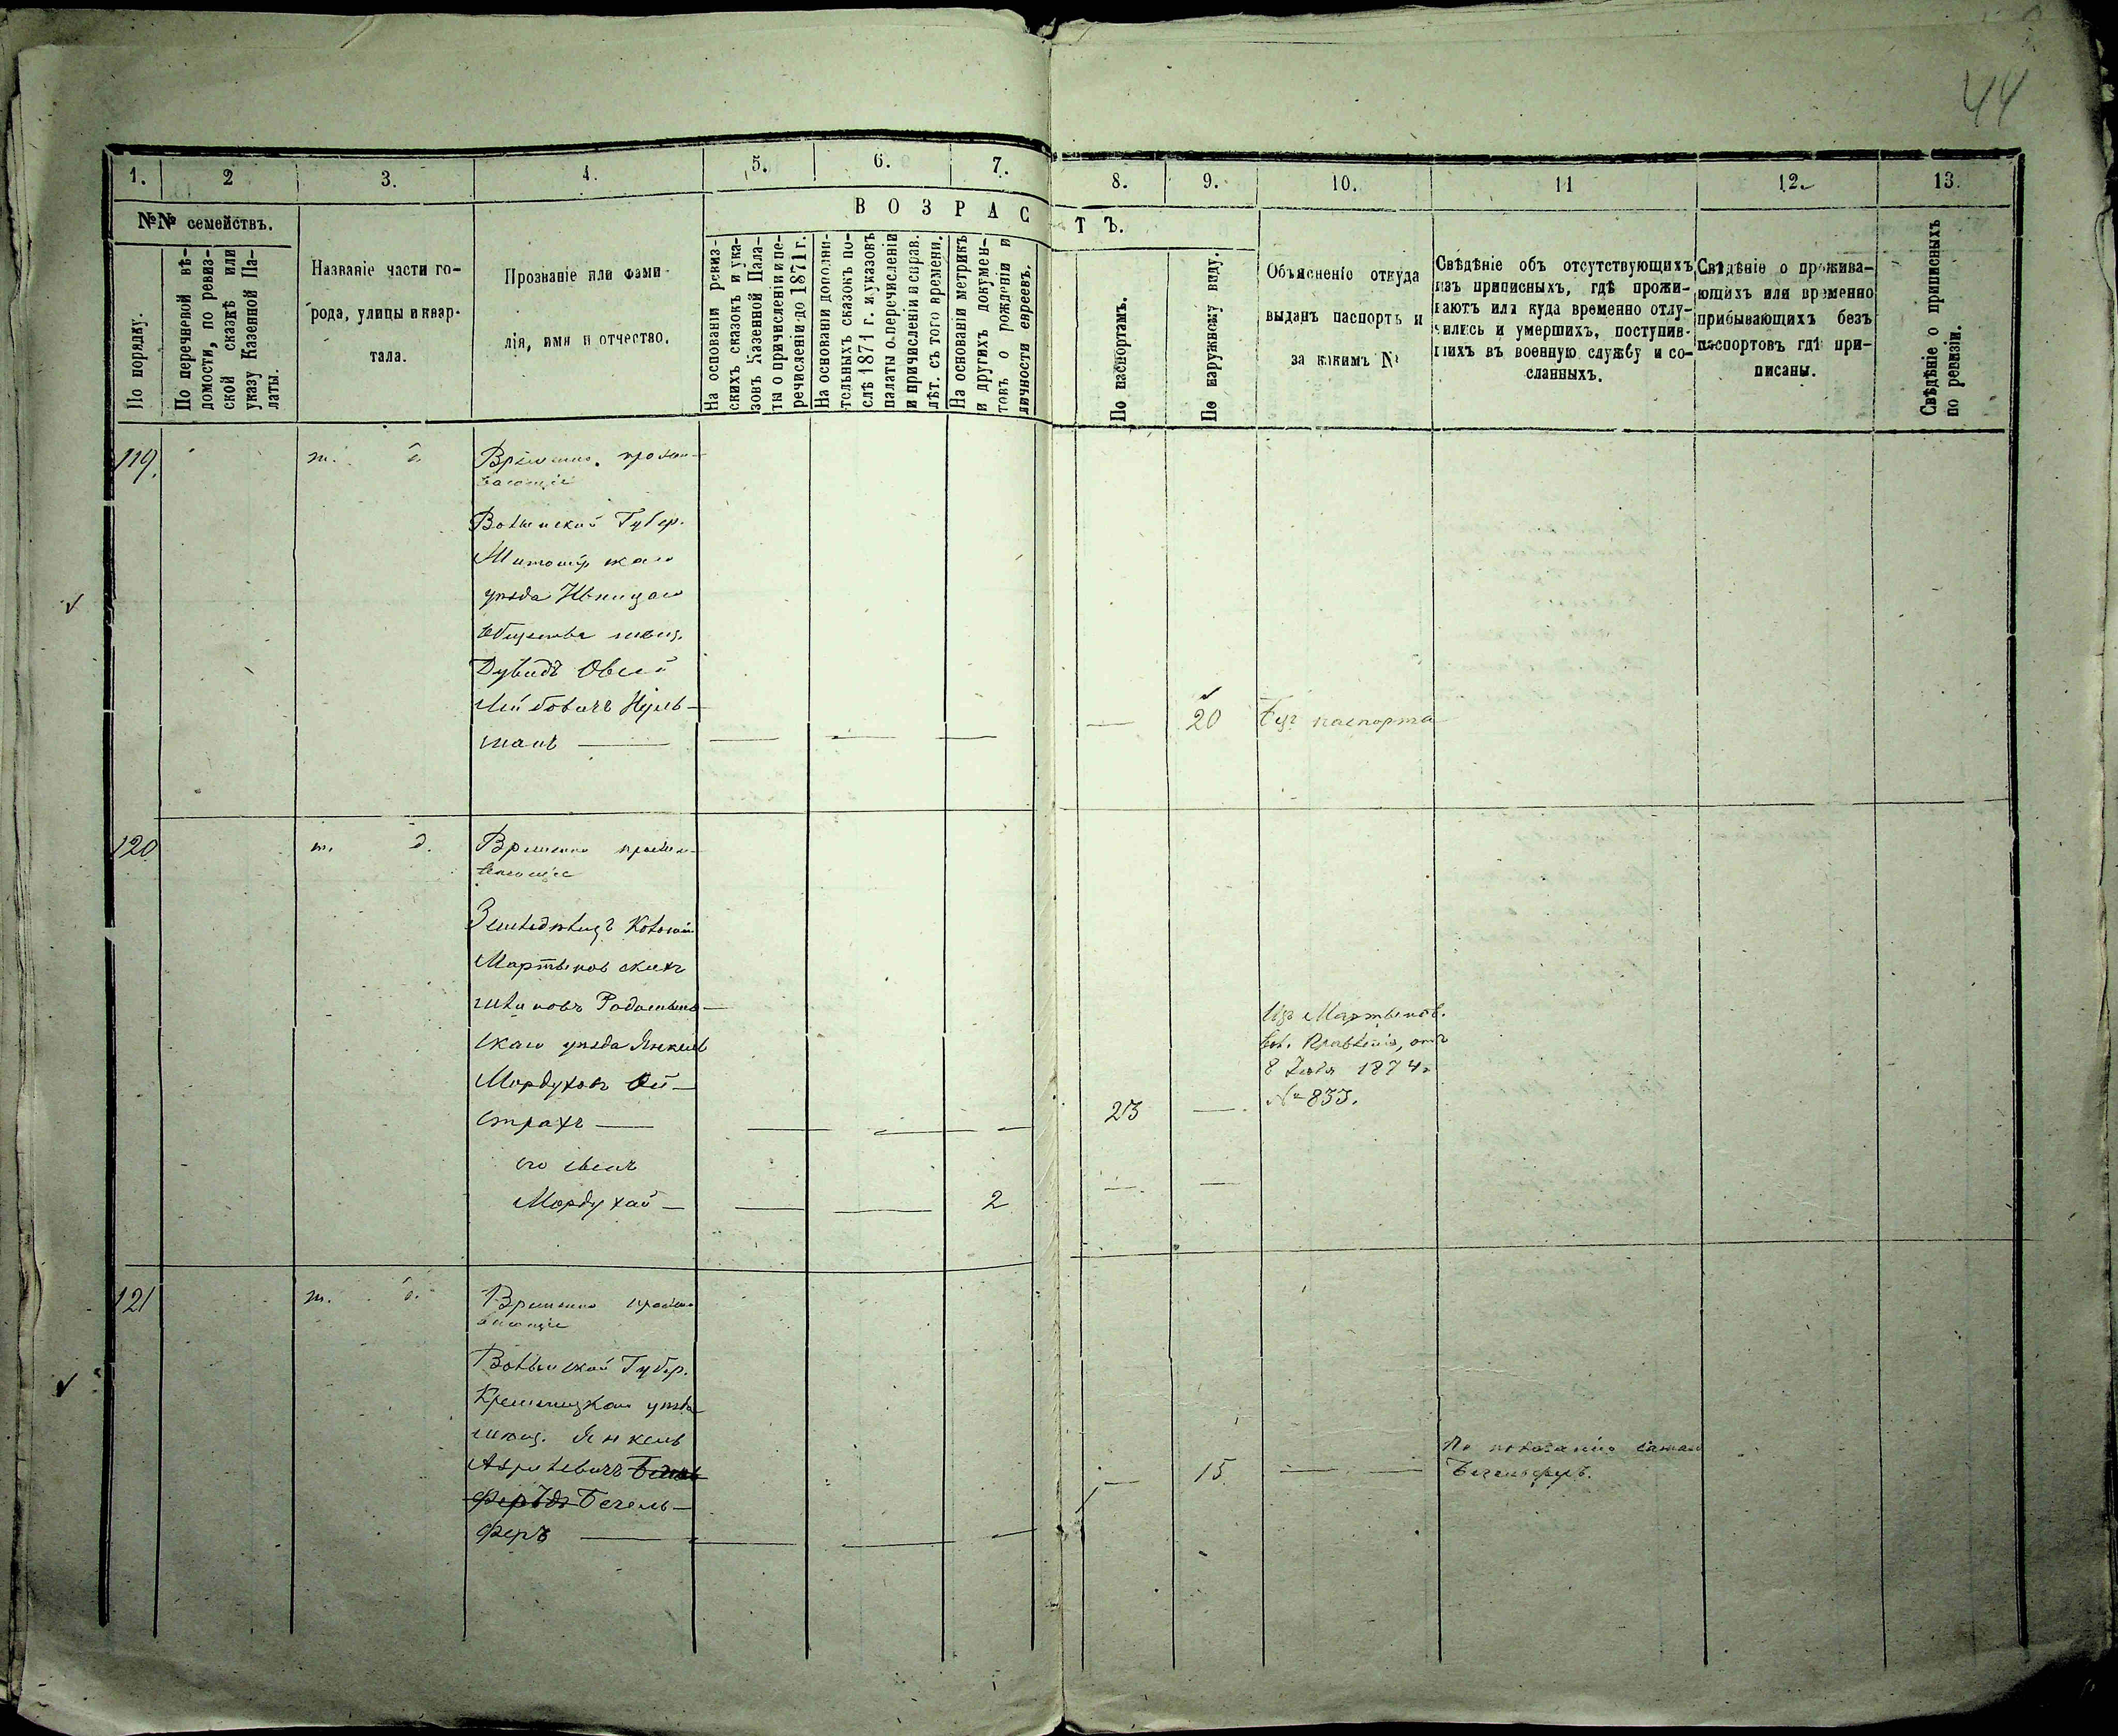 44
1. 2 3. 4. 5. 6. 7. 8. 9. 10. 11 12. 13.
№№ семействъ.
По порядку.
По перечневой вѣ-
домости, по ревиз-
ской сказкѣ или
указу Казенной Па-
латы.
Названіе части го-
рода, улицы и квар-
тала.
Прозваніе или фами-
лія, имя и отчество.
ВОЗРАСТЪ.
На основаніи ревиз-
скихъ сказокъ и ука-
зовъ Казенной Пала-
ты о причисленіи и пе-
речисленіи до 1871 г.
На основаніи дополни-
тельныхъ сказокъ по-
слѣ 1871 г. и указовъ
палаты о перечисленіи
и причисленіи и справ.
лѣт. съ того времени.
На основаніи метрикъ
и другихъ докумен-
товъ о рожденіи и
личности евреевъ.
По паспортамъ.
По наружному виду.
Объясненіе откуда
выданъ паспортъ и
за какимъ №
Свѣдѣніе объ отсутствующихъ
изъ приписныхъ, гдѣ прожи-
ваютъ или куда временно отлу-
чились и умершихъ, поступив-
шихъ въ военную службу и со-
сланныхъ.
Свѣдѣніе о прожива-
ющихъ или временно
прибывающихъ безъ
паспортовъ гдѣ при-
писаны.
Свѣдѣніе о приписныхъ
по ревизіи.
119. т. д. Временно прожи-
вающіе
Волынской Губер.
Житомірскаго
уѣзда Ивницкаго
общества мѣщ.
Дувидъ Овсей
Лейбовичъ Нуль-
манъ — — — — — 20 Безъ паспорта
120 т. д. Временно прожи-
вающіе
Земледѣлецъ Колоніи
Мартыновскихъ
Радомысль-
скаго уѣзда Янкель
Мордуховъ Ой-
страхъ — — — — 23 — Изъ Мартынов.
Правленія, отъ
8 1874 г.
№ 833.
его сынъ
Мордухай — — — 2 — —
121 т. д. Временно прожи-
вающіе
Волынской Губер.
Кременецкаго уѣзда
мѣщ. Янкель
Бегель-
феръ — — — — — 15 — — По показанію самаго
Бегельферъ.